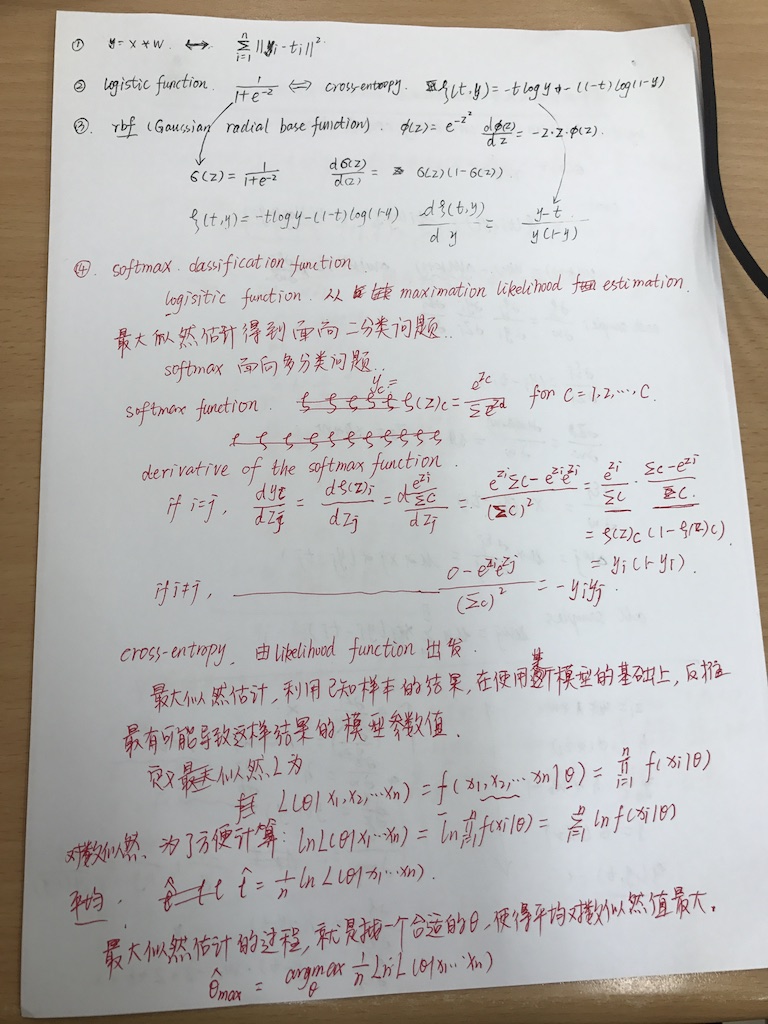 ① y = x * w ⟺ \sum_{i=1}^{n} ||y_i - t_i||^2
② logistic function. \frac{1}{1+e^{-z}} ⟺ cross-entropy. ξ(t,y) = -t log y - (1-t) log(1-y)
③. rbf (Gaussian radial base function). φ(z) = e^{-z^2} \frac{dφ(z)}{dz} = -2·z·φ(z).
σ(z) = \frac{1}{1+e^{-z}} \frac{dσ(z)}{d(z)} = σ(z)(1-σ(z))
ξ(t,y) = -t log y - (1-t) log(1-y) \frac{dξ(t,y)}{dy} = \frac{y-t}{y(1-y)}
④. softmax classification function
logisitic function. 从 maximation likelihood estimation.
最大似然估计得到面向二分类问题..
softmax 面向多分类问题..
softmax function. y_c = ξ(z)_c = \frac{e^{z_c}}{\sum e^{z_d}} for C = 1, 2, ..., C.
derivative of the softmax function.
if i=j, \frac{dy_i}{dz_j} = \frac{dξ(z)_i}{dz_j} = \frac{d\frac{e^{z_i}}{\sum C}}{dz_j} = \frac{e^{z_i}\sum C - e^{z_i}e^{z_j}}{(\sum C)^2} = \frac{e^{z_i}}{\sum C} · \frac{\sum C - e^{z_j}}{\sum C}
= ξ(z)_c (1-ξ(z)_c)
= y_i(1-y_i).
if i≠j, \frac{0 - e^{z_i}e^{z_j}}{(\sum C)^2} = -y_i y_j.
cross-entropy. 由 likelihood function 出发.
最大似然估计，利用已知样本的结果，在使用某个模型的基础上，反推
最有可能导致这样结果的模型参数值.
似然 L 为
L(θ|x_1, x_2, ...x_n) = f(x_1, x_2, ... x_n|θ) = \prod_{i=1}^{n} f(x_i|θ)
对数似然. 为了方便计算: ln L(θ|x_1...x_n) = ln \prod_{i=1}^{n} f(x_i|θ) = \sum_{i=1}^{n} ln f(x_i|θ)
平均. \hat{ℓ} = \frac{1}{n} ln L(θ|x_1...x_n).
最大似然估计的过程，就是找一个合适的θ，使得平均对数似然值最大.
\hat{θ}_{max} = argmax_θ \frac{1}{n} Ln L(θ|x_1...x_n)